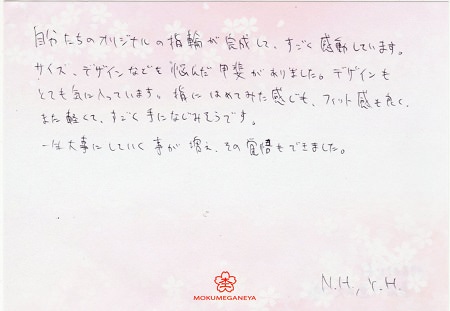 自分たちのオリジナルの指輪が完成して、すごく感動しています。
サイズ、デザインなども悩んだ甲斐がありました。デザインも
とても気に入っています。指にはめてみた感じも、フィット感も良く、
また軽くて、すごく手になじみそうです。
一生大事にしていく事が増え、その覚悟もできました。
N.H., Y.H.
MOKUMEGANEYA